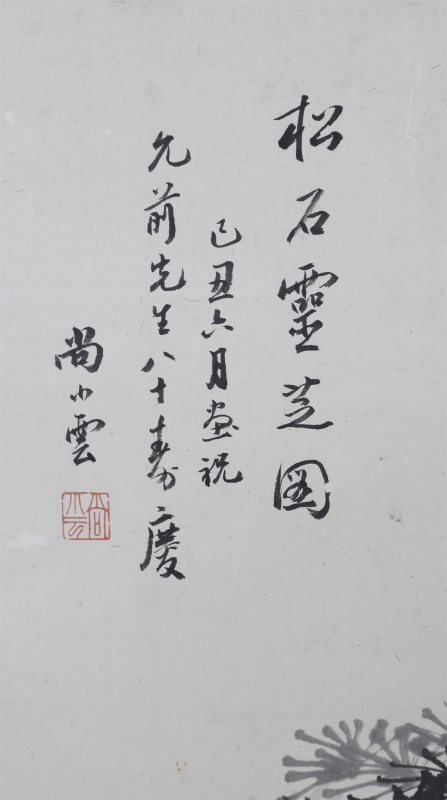 松石靈芝图
己丑六月画祝
允前先生八十寿慶
尚小雲
尚小云